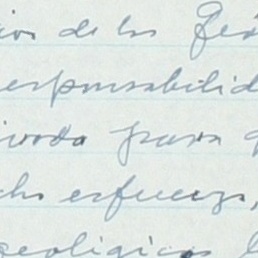 ios de los Geó
esponsabilid
ivada para q
cho esfuerzo,
geológicas l